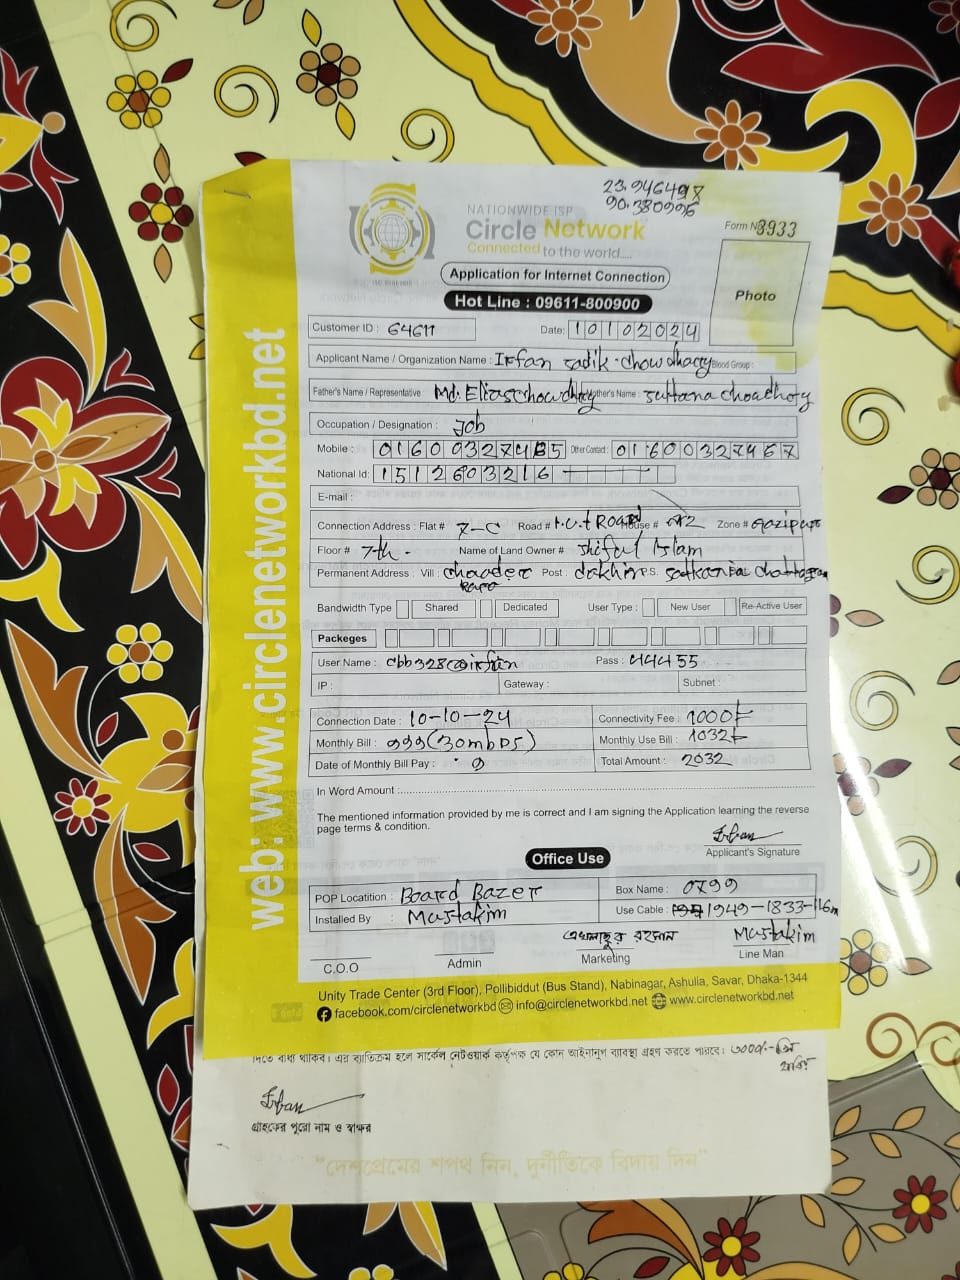 23.946498
90.380996
NATIONWIDE ISP
Circle Network
Connected to the world.....
ISO 9001:2015
Form No 3933
Application for Internet Connection
Photo
Hot Line : 09611-800900
Customer ID : 64611
Date: 10102024
Applicant Name / Organization Name : Irfan Sadik Chowdhury Blood Group :
Father's Name / Representative Md. Elias Chowdhury Mother's Name : Sultana Choudhory
Occupation / Designation : Job
Mobile : 016003274 5 Other Contact : 01600327467
National Id: 1512603216
E-mail :
Connection Address : Flat # 7-C Road # I.U.T Road House # Zone # Gazipur
Floor # 7th Name of Land Owner # Shiful Islam
Permanent Address : Vill : Post : dakhin P.S. Satkania Chattagram
para
Bandwidth Type Shared Dedicated User Type : New User Re-Active User
Packeges
User Name : cbb328@irfan Pass : 444 55
IP : Gateway : Subnet :
Connection Date : 10-10-24 Connectivity Fee : 1000/-
Monthly Bill : 999 (30mbps) Monthly Use Bill : 1032/-
Date of Monthly Bill Pay : 9 Total Amount : 2032
In Word Amount :
The mentioned information provided by me is correct and I am signing the Application learning the reverse
page terms & condition.
Irfan
Applicant's Signature
Office Use
POP Locatition : Board Bazer Box Name : 0799
Installed By : Mustakim Use Cable : 1949-1833-116m
রহমান Mustakim
C.O.O Admin Marketing Line Man
Unity Trade Center (3rd Floor), Pollibiddut (Bus Stand), Nabinagar, Ashulia, Savar, Dhaka-1344
facebook.com/circlenetworkbd info@circlenetworkbd.net www.circlenetworkbd.net
web: www.circlenetworkbd.net
দিতে বাধ্য থাকিব। এর ব্যতিক্রম হলে সার্কেল নেটওয়ার্ক কর্তৃপক্ষ যে কোন আইনানুগ ব্যবস্থা গ্রহণ করতে পারবে।
Irfan
গ্রাহকের পুরো নাম ও স্বাক্ষর
"দেশপ্রেমের শপথ নিন, দুর্নীতিকে বিদায় দিন"